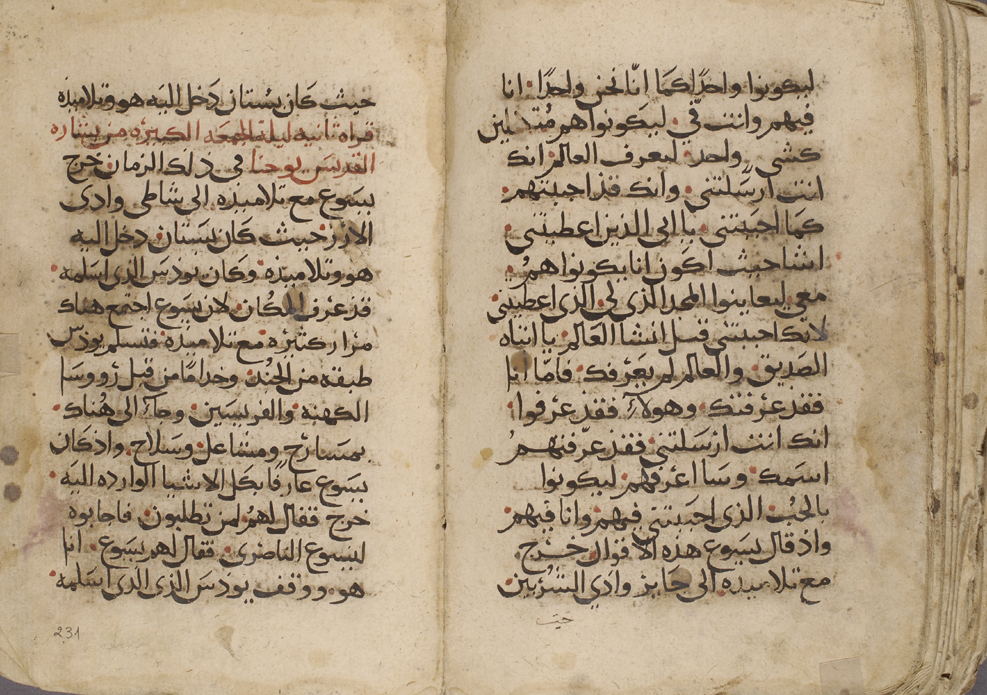 ليكونوا واحدًا كما انّا نحن واحدًا انا
فيهم وانت فيّ ليكونوا هم مُتدلين
كشى واحد ليعرف العالم انك
انت ارسَلتنى وانك قد احببتهم
كما احببتنى يا ابى الذين اعطيتنى
اشا حيث اكون انا يكونوا همُ
معى ليعاينوا المجد الذى لى الذى اعطيتنى
لانك احببتنى قبل انشا العالم يا ابتاه
الصديق والعالم لم يعرفك فامّا انا
فقد عرفتك وهولآء فقد عرفوا
انك انت ارسَلتنى فقد عرّفتهمُ
اسمك وسا اعرفهم ليكونوا
بالحُب الذى احببتنى فيهم وانا فيهم
واذ قال يسوع هذه الاقوال خرج
مع تلاميذه الى جايز وادي الشربين
حيث
حيث كان بستان دخل اليه هو وتلاميذه
قراه ثانيه ليلة الجمعه الكبيره من بشاره
القديس يوحنا فى ذلك الزمان خرج
يسوع مع تلاميذه الى شاطى وادى
الارز حيث كان بستان دخل اليه
هو وتلاميذه وكان يودس الذى اسلمه
قد عرف المكان لان يسوع اجتمع هناك
مرار كثيره مع تلاميذه فتسلم يودس
طبقه من الجند وخدامًا من قبل رووسا
الكهنه والفريسيين وجآء الى هُناك
بمسارج ومشاعل وسلاح واذ كان
يسوع عارفًا بكل الاشيا الوارده اليه
خرج فقال لهمُ لمن تطلبون فاجابوه
ليسوع الناصرى فقال لهم يسوع انا
هو ووقف يودس الذى الذى اسلمه
231